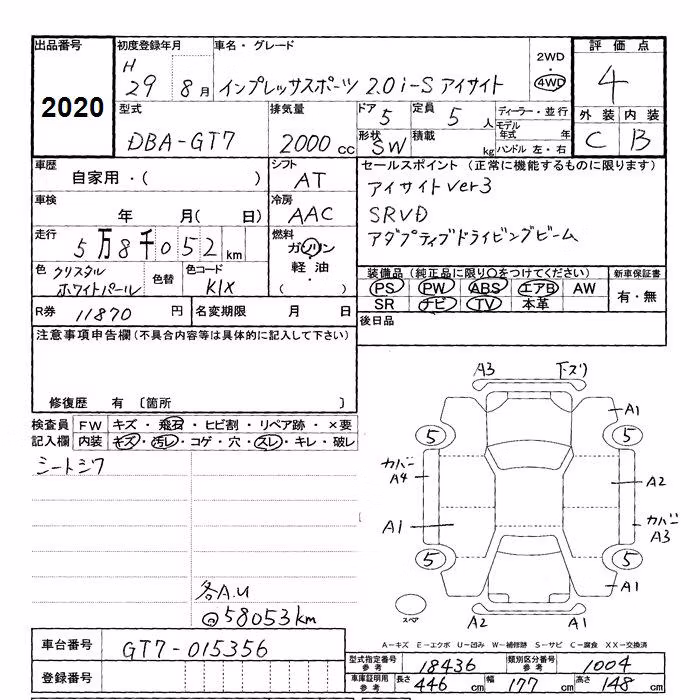 出品番号 初度登録年月 車名・グレード 2WD 評価点
2020 H 29 8月 インプレッサスポーツ 2.0i-S アイサイト 4WD 4
型式 排気量 ドア 5 定員 5人 ディーラー・並行 外装 内装
DBA-GT7 2000cc 形状 SW 積載 kg モデル年式 年 C B
ハンドル 左・右
車歴 シフト セールスポイント (正常に機能するものに限ります)
自家用・( ) AT アイサイト ver3
車検 冷房 SRVD
年 月( 日) AAC アダプティブドライビングビーム
走行 燃料
5万8千052km ガソリン
軽油・
( )
色 クリスタルホワイトパール 色替 色コード K1X
装備品 (純正品に限り○をつけてください) 新車保証書
PS PW ABS エアB AW 有・無
SR ナビ TV 本革
R券 11870円 名変期限 月 日 後日品
注意事項申告欄(不具合内容等は具体的に記入して下さい)
修復歴 有 〔箇所 〕
検査員 FW キズ・飛石・ヒビ割・リペア跡・×要
記入欄 内装 キズ・汚レ・コゲ・穴・スレ・キレ・破レ
シートシワ
各A.U
@58053km
A3 下ズリ
A1
5 5
カバーA4 A2
A1 カバーA3
5 5
A1
スペア A2 A1
A-キズ E-エクボ U-凹み W-補修跡 S-サビ C-腐食 XX-交換済
車台番号 GT7-015356
登録番号
型式指定番号 参考 18436 類別区分番号 参考 1004
車庫証明用 参考 長さ 446cm 幅 177cm 高さ 148cm